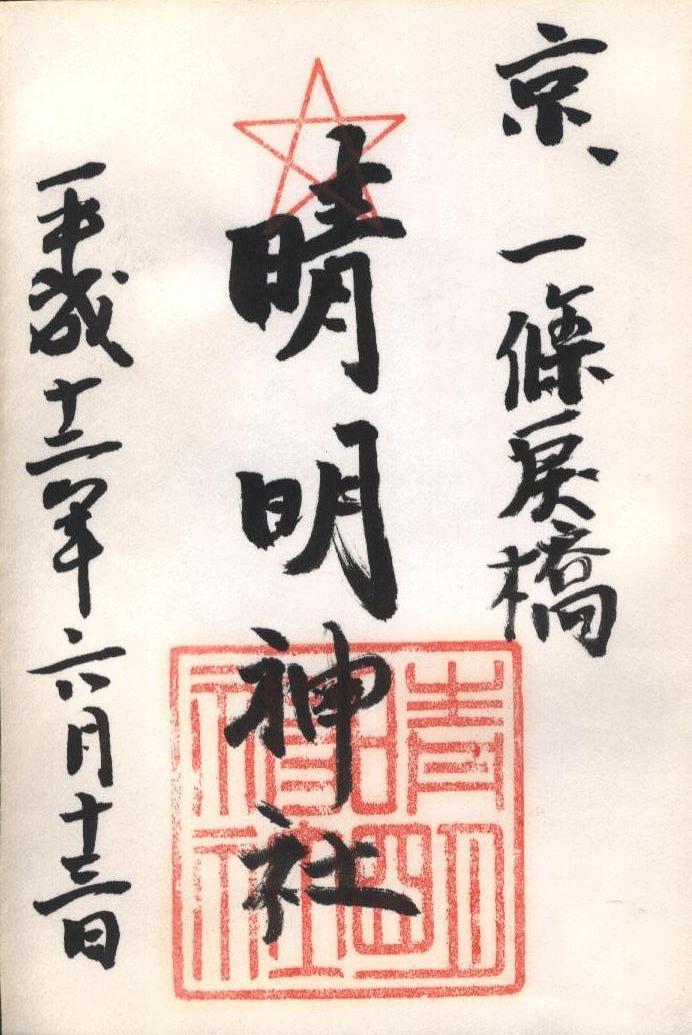 京、一條戻橋
晴明神社
平成十二年六月十三日
晴明神社